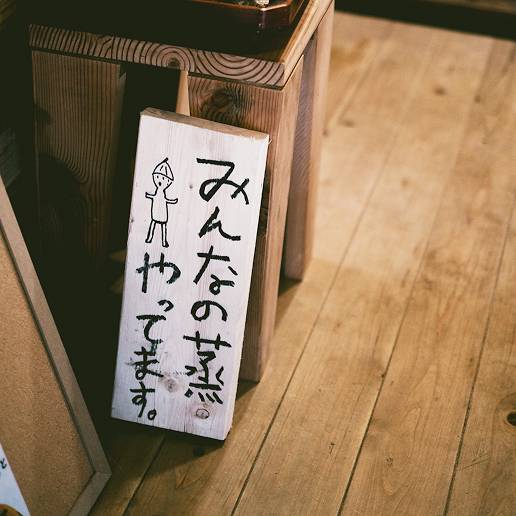 みんなの蒸。
やってます。
と